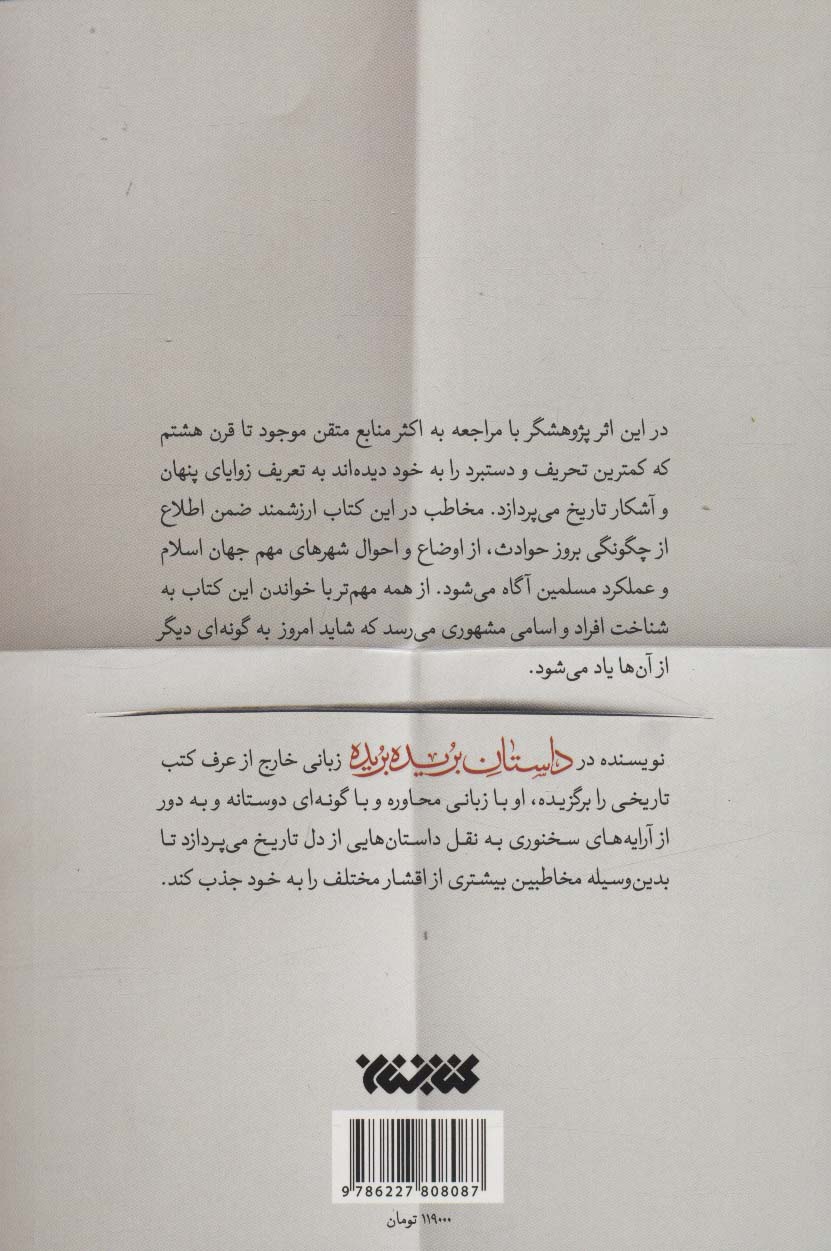 در این اثر پژوهشگر با مراجعه به اکثر منابع متقن موجود تا قرن هشتم
که کمترین تحریف و دستبرد را به خود دیده‌اند به تعریف زوایای پنهان
و آشکار تاریخ می‌پردازد. مخاطب در این کتاب ارزشمند ضمن اطلاع
از چگونگی بروز حوادث، از اوضاع و احوال شهرهای مهم جهان اسلام
و عملکرد مسلمین آگاه می‌شود. از همه مهم‌تر با خواندن این کتاب به
شناخت افراد و اسامی مشهوری می‌رسد که شاید امروز به گونه‌ای دیگر
از آن‌ها یاد می‌شود.
نویسنده در داستانِ بُریده‌بُریده زبانی خارج از عرف کتب
تاریخی را برگزیده، او با زبانی محاوره و با گونه‌ای دوستانه و به دور
از آرایه‌های سخنوری به نقل داستان‌هایی از دل تاریخ می‌پردازد تا
بدین‌وسیله مخاطبین بیشتری از اقشار مختلف را به خود جذب کند.
کتابستان
9 786227 808087
۱۱۹۰۰۰ تومان